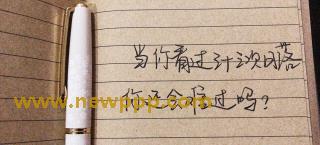 当你看过次日落
www.newppp.com
你还会过吗?